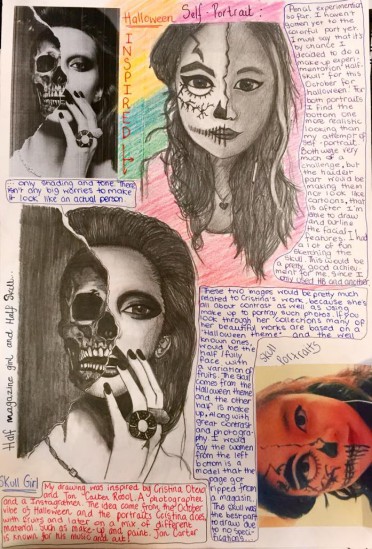 Halloween Self-Portrait:
INSPIRED
Pencil experimental
so far. I haven't
gotten yet to the
colorful part yet.
I must say that it's
by chance I
decided to do a
make up experi-
mentation "half
skull" for this
October for
halloween. For
both portraits
I find the
bottom one
more realistic
looking than
my attempt of
self-portrait.
Both were very
much of a
challenge, but
the harder
part would be
making them
not look like
cartoons, that
is after I'm
able to draw
and outline
the facial
features. I had
a lot of fun
the
Skull. This would be
a pretty good achieve-
ment for me, since I
only used HB and another.
only shading and tone. There
isn't any big worries to make
it look like an actual person.
Half magazine girl and Half Skull...
These two images would be pretty much
related to Cristina's work because she's
all about contrast as well as using
make up to portray such photos. If you
look through her collections many of
her beautiful works are based on a
"Halloween theme" and the well
known ones,
would be the
half/fully
face with
a variation of
fruits. The skull
comes from the
Halloween theme
and the other
half is make
up, along with
great contrast
and photogra-
phy. I would
say the women
from the left
bottom is a
model that the
page ripped
from a
magasin.
The skull
was the best part
to draw due
to no speci-
fications...
Skull Portraits
Skull Girl
My drawing was inspired by Cristina Otero
and Ian Carter. A photographer
and a Instagramer. The idea came from the October
vibe of Halloween and the portraits Cristina does,
with fruits and later on a mix of different
material such as make-up and paint. Ian Carter
is known for his music and art.